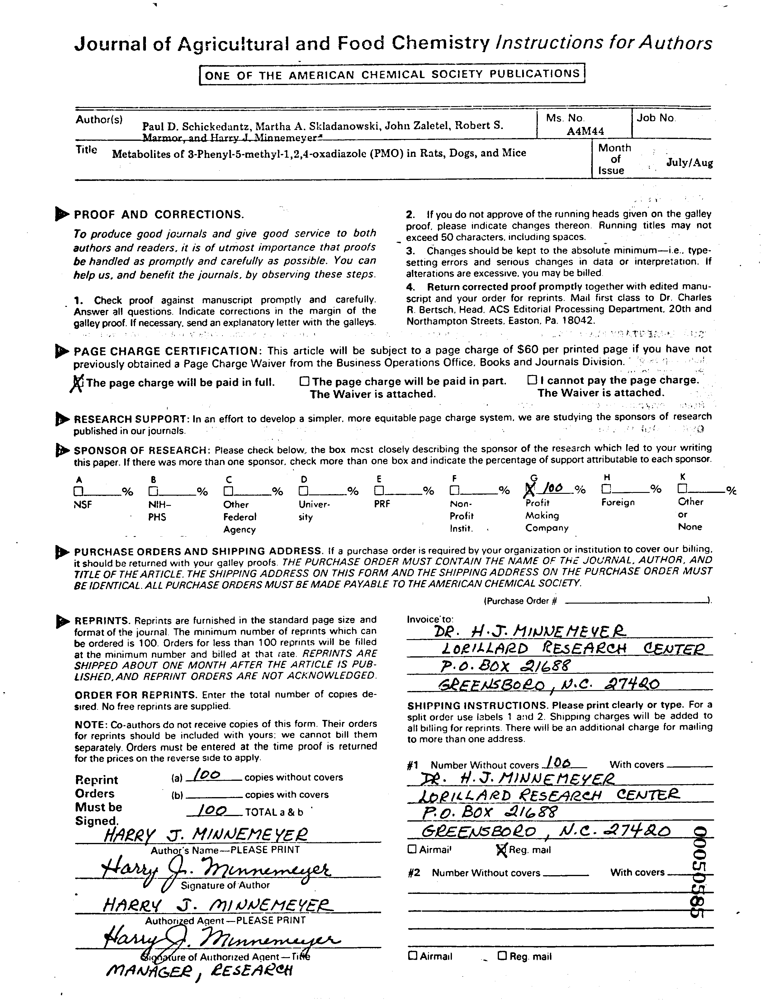 Journal of Agricultural and Food Chemistry Instructions for Authors
ONE OF THE AMERICAN CHEMICAL SOCIETY PUBLICATIONS
Author(s) Paul D. Schickedantz, Martha A. Skladanowski, John Zaletel, Robert S.
Marmor, and Harry J. Minnemeyer*
Ms. No. A4M44
Job No.
Title Metabolites of 3-Phenyl-5-methyl-1,2,4-oxadiazole (PMO) in Rats, Dogs, and Mice
Month of Issue July/Aug
PROOF AND CORRECTIONS.
To produce good journals and give good service to both
authors and readers, it is of utmost importance that proofs
be handled as promptly and carefully as possible. You can
help us, and benefit the journals, by observing these steps.
1. Check proof against manuscript promptly and carefully.
Answer all questions. Indicate corrections in the margin of the
galley proof. If necessary, send an explanatory letter with the galleys.
2. If you do not approve of the running heads given on the galley
proof, please indicate changes thereon. Running titles may not
exceed 50 characters, including spaces.
3. Changes should be kept to the absolute minimum—i.e., type-
setting errors and serious changes in data or interpretation. If
alterations are excessive, you may be billed.
4. Return corrected proof promptly together with edited manu-
script and your order for reprints. Mail first class to Dr. Charles
R. Bertsch, Head, ACS Editorial Processing Department, 20th and
Northampton Streets, Easton, Pa. 18042.
PAGE CHARGE CERTIFICATION: This article will be subject to a page charge of $60 per printed page if you have not
previously obtained a Page Charge Waiver from the Business Operations Office, Books and Journals Division.
X The page charge will be paid in full.
☐ The page charge will be paid in part.
The Waiver is attached.
☐ I cannot pay the page charge.
The Waiver is attached.
RESEARCH SUPPORT: In an effort to develop a simpler, more equitable page charge system, we are studying the sponsors of research
published in our journals.
SPONSOR OF RESEARCH: Please check below, the box most closely describing the sponsor of the research which led to your writing
this paper. If there was more than one sponsor, check more than one box and indicate the percentage of support attributable to each sponsor.
A B C D E F G H K
☐ % ☐ % ☐ % ☐ % ☐ % ☐ % X 100 % ☐ % ☐ %
NSF NIH– Other Univer- PRF Non- Profit Foreign Other
PHS Federal sity Profit Making or
Agency Instit. Company None
PURCHASE ORDERS AND SHIPPING ADDRESS. If a purchase order is required by your organization or institution to cover our billing,
it should be returned with your galley proofs. THE PURCHASE ORDER MUST CONTAIN THE NAME OF THE JOURNAL, AUTHOR, AND
TITLE OF THE ARTICLE. THE SHIPPING ADDRESS ON THIS FORM AND THE SHIPPING ADDRESS ON THE PURCHASE ORDER MUST
BE IDENTICAL. ALL PURCHASE ORDERS MUST BE MADE PAYABLE TO THE AMERICAN CHEMICAL SOCIETY.
(Purchase Order # ).
REPRINTS. Reprints are furnished in the standard page size and
format of the journal. The minimum number of reprints which can
be ordered is 100. Orders for less than 100 reprints will be filled
at the minimum number and billed at that rate. REPRINTS ARE
SHIPPED ABOUT ONE MONTH AFTER THE ARTICLE IS PUB-
LISHED, AND REPRINT ORDERS ARE NOT ACKNOWLEDGED.
ORDER FOR REPRINTS. Enter the total number of copies de-
sired. No free reprints are supplied.
NOTE: Co-authors do not receive copies of this form. Their orders
for reprints should be included with yours; we cannot bill them
separately. Orders must be entered at the time proof is returned
for the prices on the reverse side to apply.
Reprint (a) 100 copies without covers
Orders (b) copies with covers
Must be 100 TOTAL a & b
Signed.
HARRY J. MINNEMEYER
Author's Name—PLEASE PRINT
Harry J. Minnemeyer
Signature of Author
HARRY J. MINNEMEYER
Authorized Agent—PLEASE PRINT
Harry J. Minnemeyer
Signature of Authorized Agent—Title
MANAGER, RESEARCH
Invoice to:
DR. H.J. MINNEMEYER
LORILLARD RESEARCH CENTER
P.O. BOX 21688
GREENSBORO, N.C. 27420
SHIPPING INSTRUCTIONS. Please print clearly or type. For a
split order use labels 1 and 2. Shipping charges will be added to
all billing for reprints. There will be an additional charge for mailing
to more than one address.
#1 Number Without covers 100 With covers
DR. H.J. MINNEMEYER
LORILLARD RESEARCH CENTER
P.O. BOX 21688
GREENSBORO, N.C. 27420
☐ Airmail X Reg. mail
#2 Number Without covers With covers
☐ Airmail ☐ Reg. mail
00050585